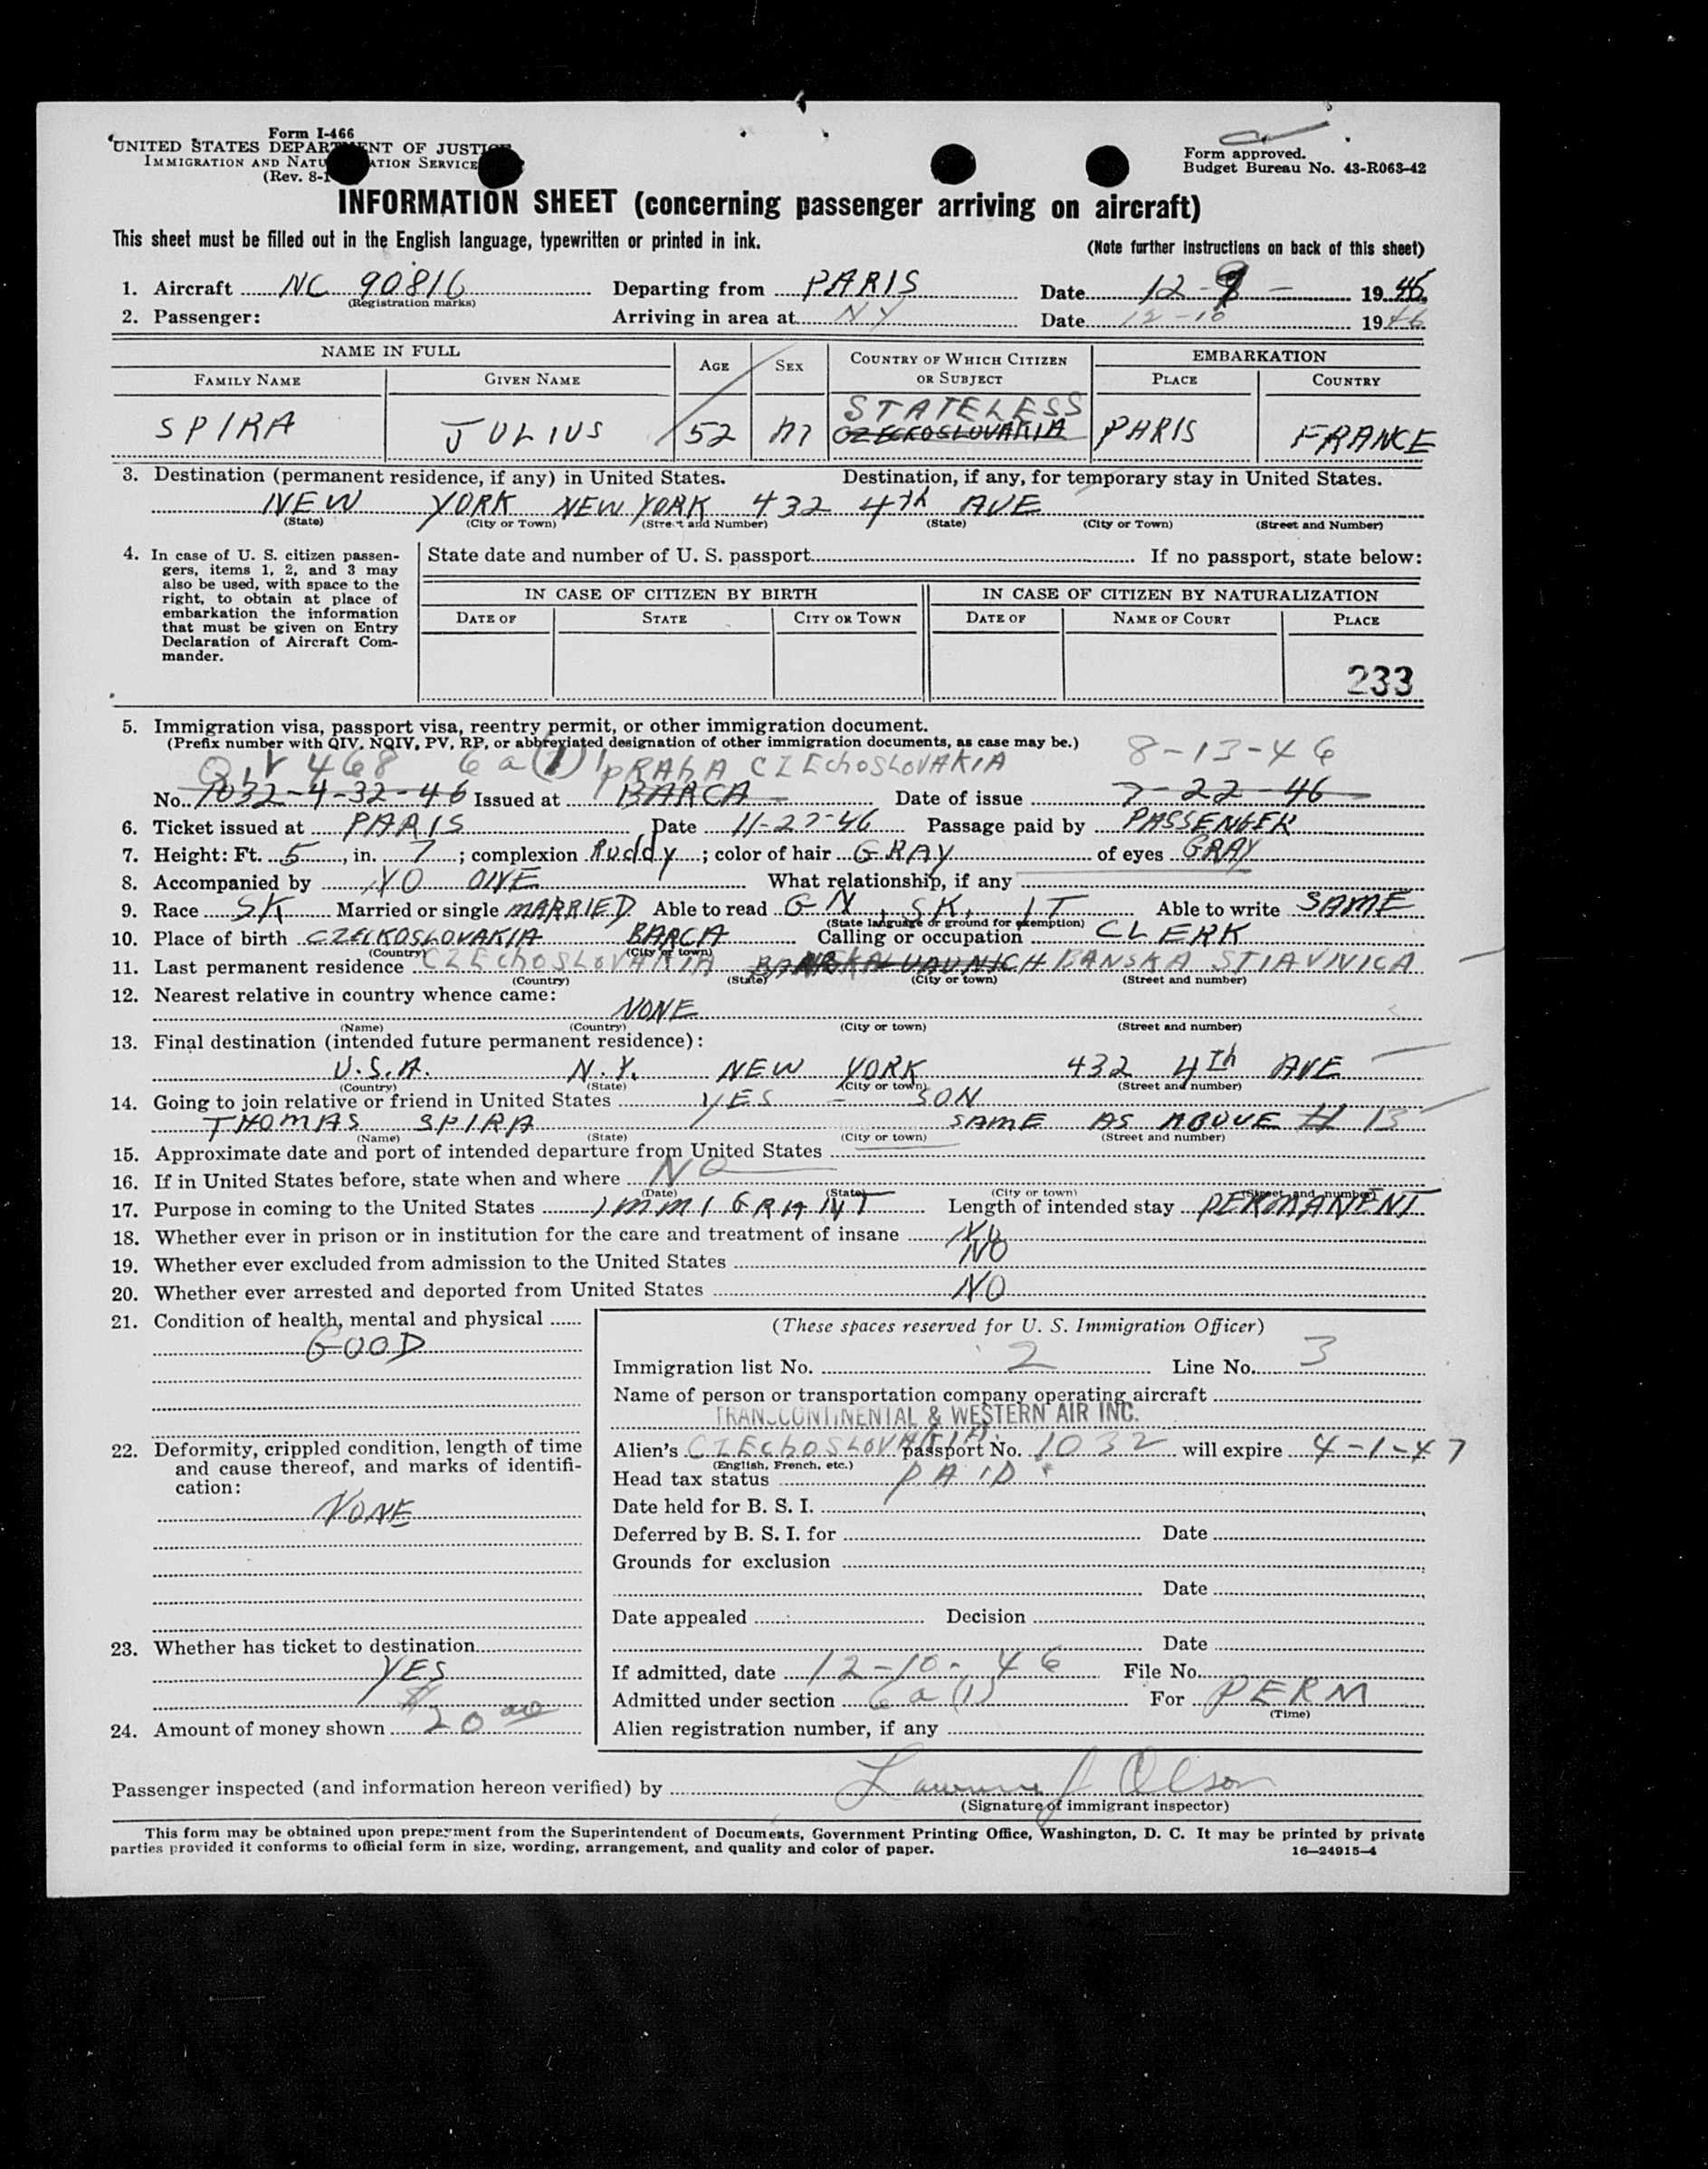 Form I-466
UNITED STATES DEPARTMENT OF JUSTICE
IMMIGRATION AND NATU ATION SERVICE
(Rev. 8-1
Form approved.
Budget Bureau No. 43-R063-42
INFORMATION SHEET (concerning passenger arriving on aircraft)
This sheet must be filled out in the English language, typewritten or printed in ink.
(Note further instructions on back of this sheet)
1. Aircraft NC 90816 Departing from PARIS Date 12-9- 1946
(Registration marks)
2. Passenger: Arriving in area at NY Date 12-10 1946
NAME IN FULL AGE SEX COUNTRY OF WHICH CITIZEN OR SUBJECT EMBARKATION
FAMILY NAME GIVEN NAME PLACE COUNTRY
STATELESS
SPIRA JULIUS 52 M CZECKOSLOVAKIA PARIS FRANCE
3. Destination (permanent residence, if any) in United States. Destination, if any, for temporary stay in United States.
NEW YORK NEW YORK 432 4th AVE
(State) (City or Town) (Street and Number) (State) (City or Town) (Street and Number)
4. In case of U. S. citizen passen-
gers, items 1, 2, and 3 may
also be used, with space to the
right, to obtain at place of
embarkation the information
that must be given on Entry
Declaration of Aircraft Com-
mander.
State date and number of U. S. passport If no passport, state below:
IN CASE OF CITIZEN BY BIRTH IN CASE OF CITIZEN BY NATURALIZATION
DATE OF STATE CITY OR TOWN DATE OF NAME OF COURT PLACE
233
5. Immigration visa, passport visa, reentry permit, or other immigration document.
(Prefix number with QIV, NQIV, PV, RP, or abbreviated designation of other immigration documents, as case may be.)
QIV 468 6a(1) PRAhA CZEchoSLOVAKIA 8-13-46
No. 1032-4-32-46 Issued at BARCA Date of issue 7-22-46
6. Ticket issued at PARIS Date 11-27-46 Passage paid by PASSENGER
7. Height: Ft. 5, in. 7; complexion Ruddy; color of hair GRAY of eyes GRAY
8. Accompanied by NO ONE What relationship, if any
9. Race SK Married or single MARRIED Able to read GN, SK, IT Able to write SAME
(State language or ground for exemption)
10. Place of birth CZECKOSLOVAKIA BARCA Calling or occupation CLERK
(Country) (City or town)
11. Last permanent residence CZEchoSLOVAKIA BANSKA STIAVNICA
(Country) (State) (City or town) (Street and number)
12. Nearest relative in country whence came:
NONE
(Name) (Country) (City or town) (Street and number)
13. Final destination (intended future permanent residence):
U.S.A. N.Y. NEW YORK 432 4th AVE
(Country) (State) (City or town) (Street and number)
14. Going to join relative or friend in United States YES - SON
THOMAS SPIRA SAME AS ABOVE # 13
(Name) (State) (City or town) (Street and number)
15. Approximate date and port of intended departure from United States
16. If in United States before, state when and where NO
(Date) (State) (City or town) (Street and number)
17. Purpose in coming to the United States IMMIGRANT Length of intended stay PERMANENT
18. Whether ever in prison or in institution for the care and treatment of insane NO
19. Whether ever excluded from admission to the United States NO
20. Whether ever arrested and deported from United States NO
21. Condition of health, mental and physical
GOOD
22. Deformity, crippled condition, length of time
and cause thereof, and marks of identifi-
cation:
NONE
23. Whether has ticket to destination
YES
24. Amount of money shown $20.00
(These spaces reserved for U. S. Immigration Officer)
Immigration list No. 2 Line No. 3
Name of person or transportation company operating aircraft
TRANSCONTINENTAL & WESTERN AIR INC.
Alien's CZEchoSLOVAKIA passport No. 1032 will expire 4-1-47
(English, French, etc.)
Head tax status PAID
Date held for B. S. I.
Deferred by B. S. I. for Date
Grounds for exclusion
Date
Date appealed Decision
Date
If admitted, date 12-10-46 File No.
Admitted under section 6a(1) For PERM
(Time)
Alien registration number, if any
Passenger inspected (and information hereon verified) by Lawrence J Olson
(Signature of immigrant inspector)
This form may be obtained upon prepayment from the Superintendent of Documents, Government Printing Office, Washington, D. C. It may be printed by private
parties provided it conforms to official form in size, wording, arrangement, and quality and color of paper.
16—24915-4